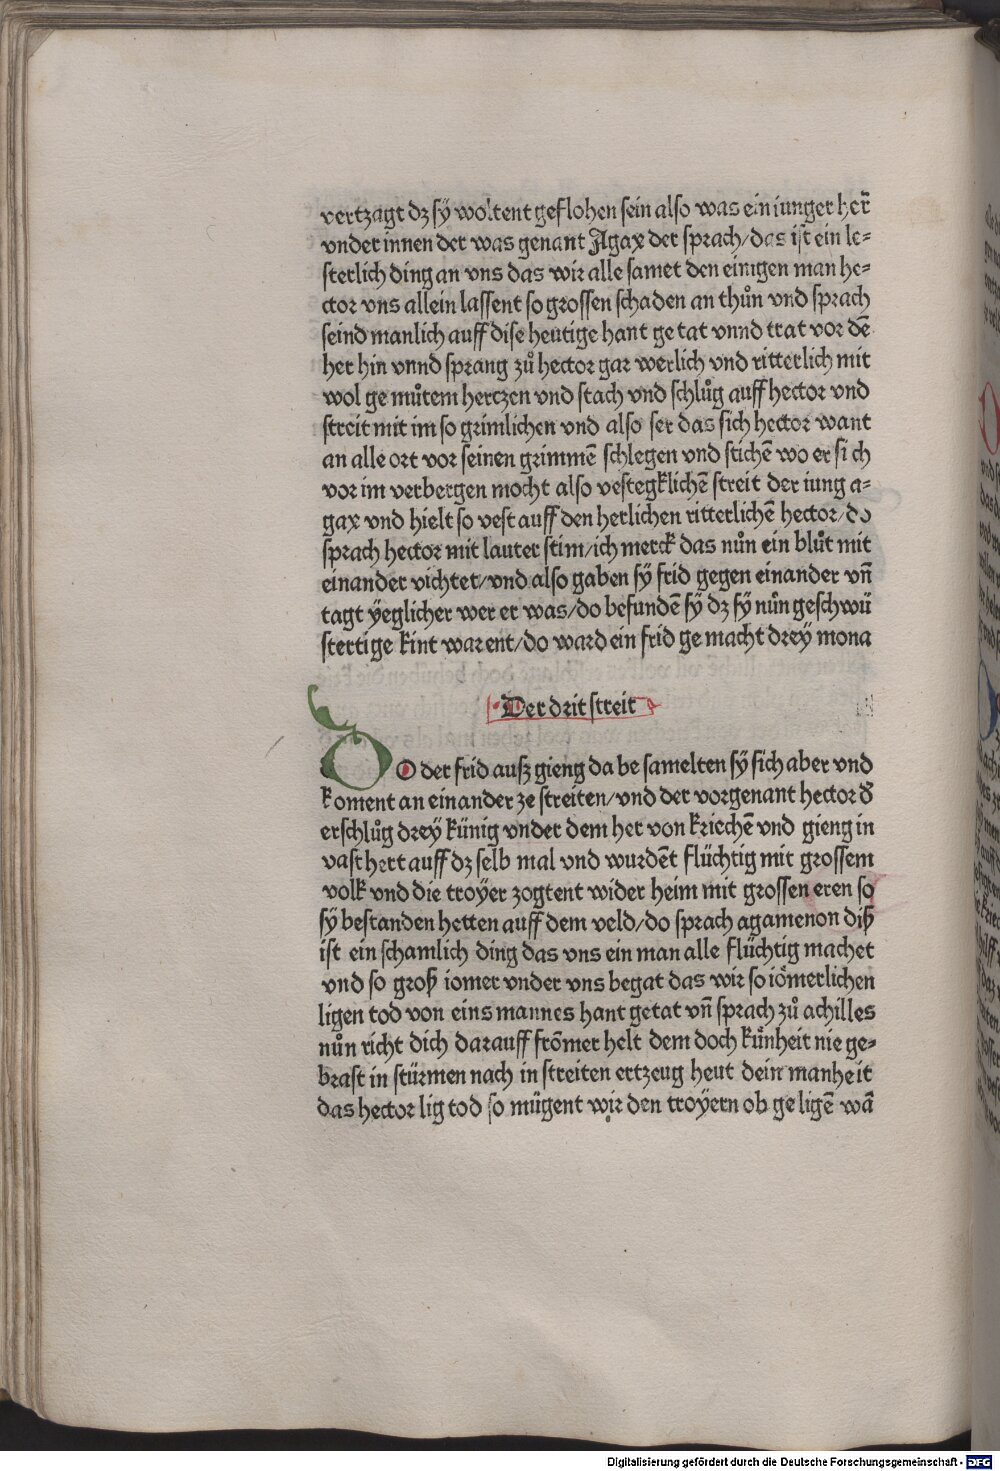 vertzagt dz sÿ woltent geflohen sein also was ein iunger her̃
vnder innen der was genant Agax der sprach/das ist ein le⸗
sterlich ding an vns das wir alle samet den einigen man he⸗
ctor vns allein lassent so grossen schaden an thůn vnd sprach
seind manlich auff dise heutige hant ge tat vnnd trat vor dē
her hin vnnd sprang zů hector gar werlich vnd ritterlich mit
wol ge můtem hertzen vnd stach vnd schlůg auff hector vnd
streit mit im so grimlichen vnd also ser das sich hector want
an alle ort vor seinen grimmē schlegen vnd stichē wo er si ch
vor im verbergen mocht also vestegklichē streit der iung a⸗
gax vnd hielt so vest auff den herlichen ritterlichē hector/do
sprach hector mit lauter stim/ich merck das nůn ein blůt mit
einander vichtet/vnd also gaben sÿ frid gegen einander vñ
tagt ÿeglicher wer er was/do befundē sÿ dz sÿ nůn geschwü
stertige kint warent/do ward ein frid ge macht dreÿ mona
Der drit streit
DO der frid ausz gieng da be samelten sÿ sich aber vnd
koment an einander ze streiten/vnd der vorgenant hector d̄
erschlůg dreÿ künig vnder dem her von kriechē vnd gieng in
vast hert auff dz selb mal vnd wurdēt flüchtig mit grossem
volk vnd die troÿer zogtent wider heim mit grossen eren so
sÿ bestanden hetten auff dem veld/do sprach agamenon diß
ist ein schamlich ding das vns ein man alle flüchtig machet
vnd so groß iomer vnder vns begat das wir so iömerlichen
ligen tod von eins mannes hant getat vñ sprach zů achilles
nůn richt dich darauff frōmer helt dem doch kůnheit nie ge⸗
brast in stürmen nach in streiten ertzeug heut dein manheit
das hector lig tod so mügent wir den troÿern ob ge ligē wā
Digitalisierung gefördert durch die Deutsche Forschungsgemeinschaft - DFG